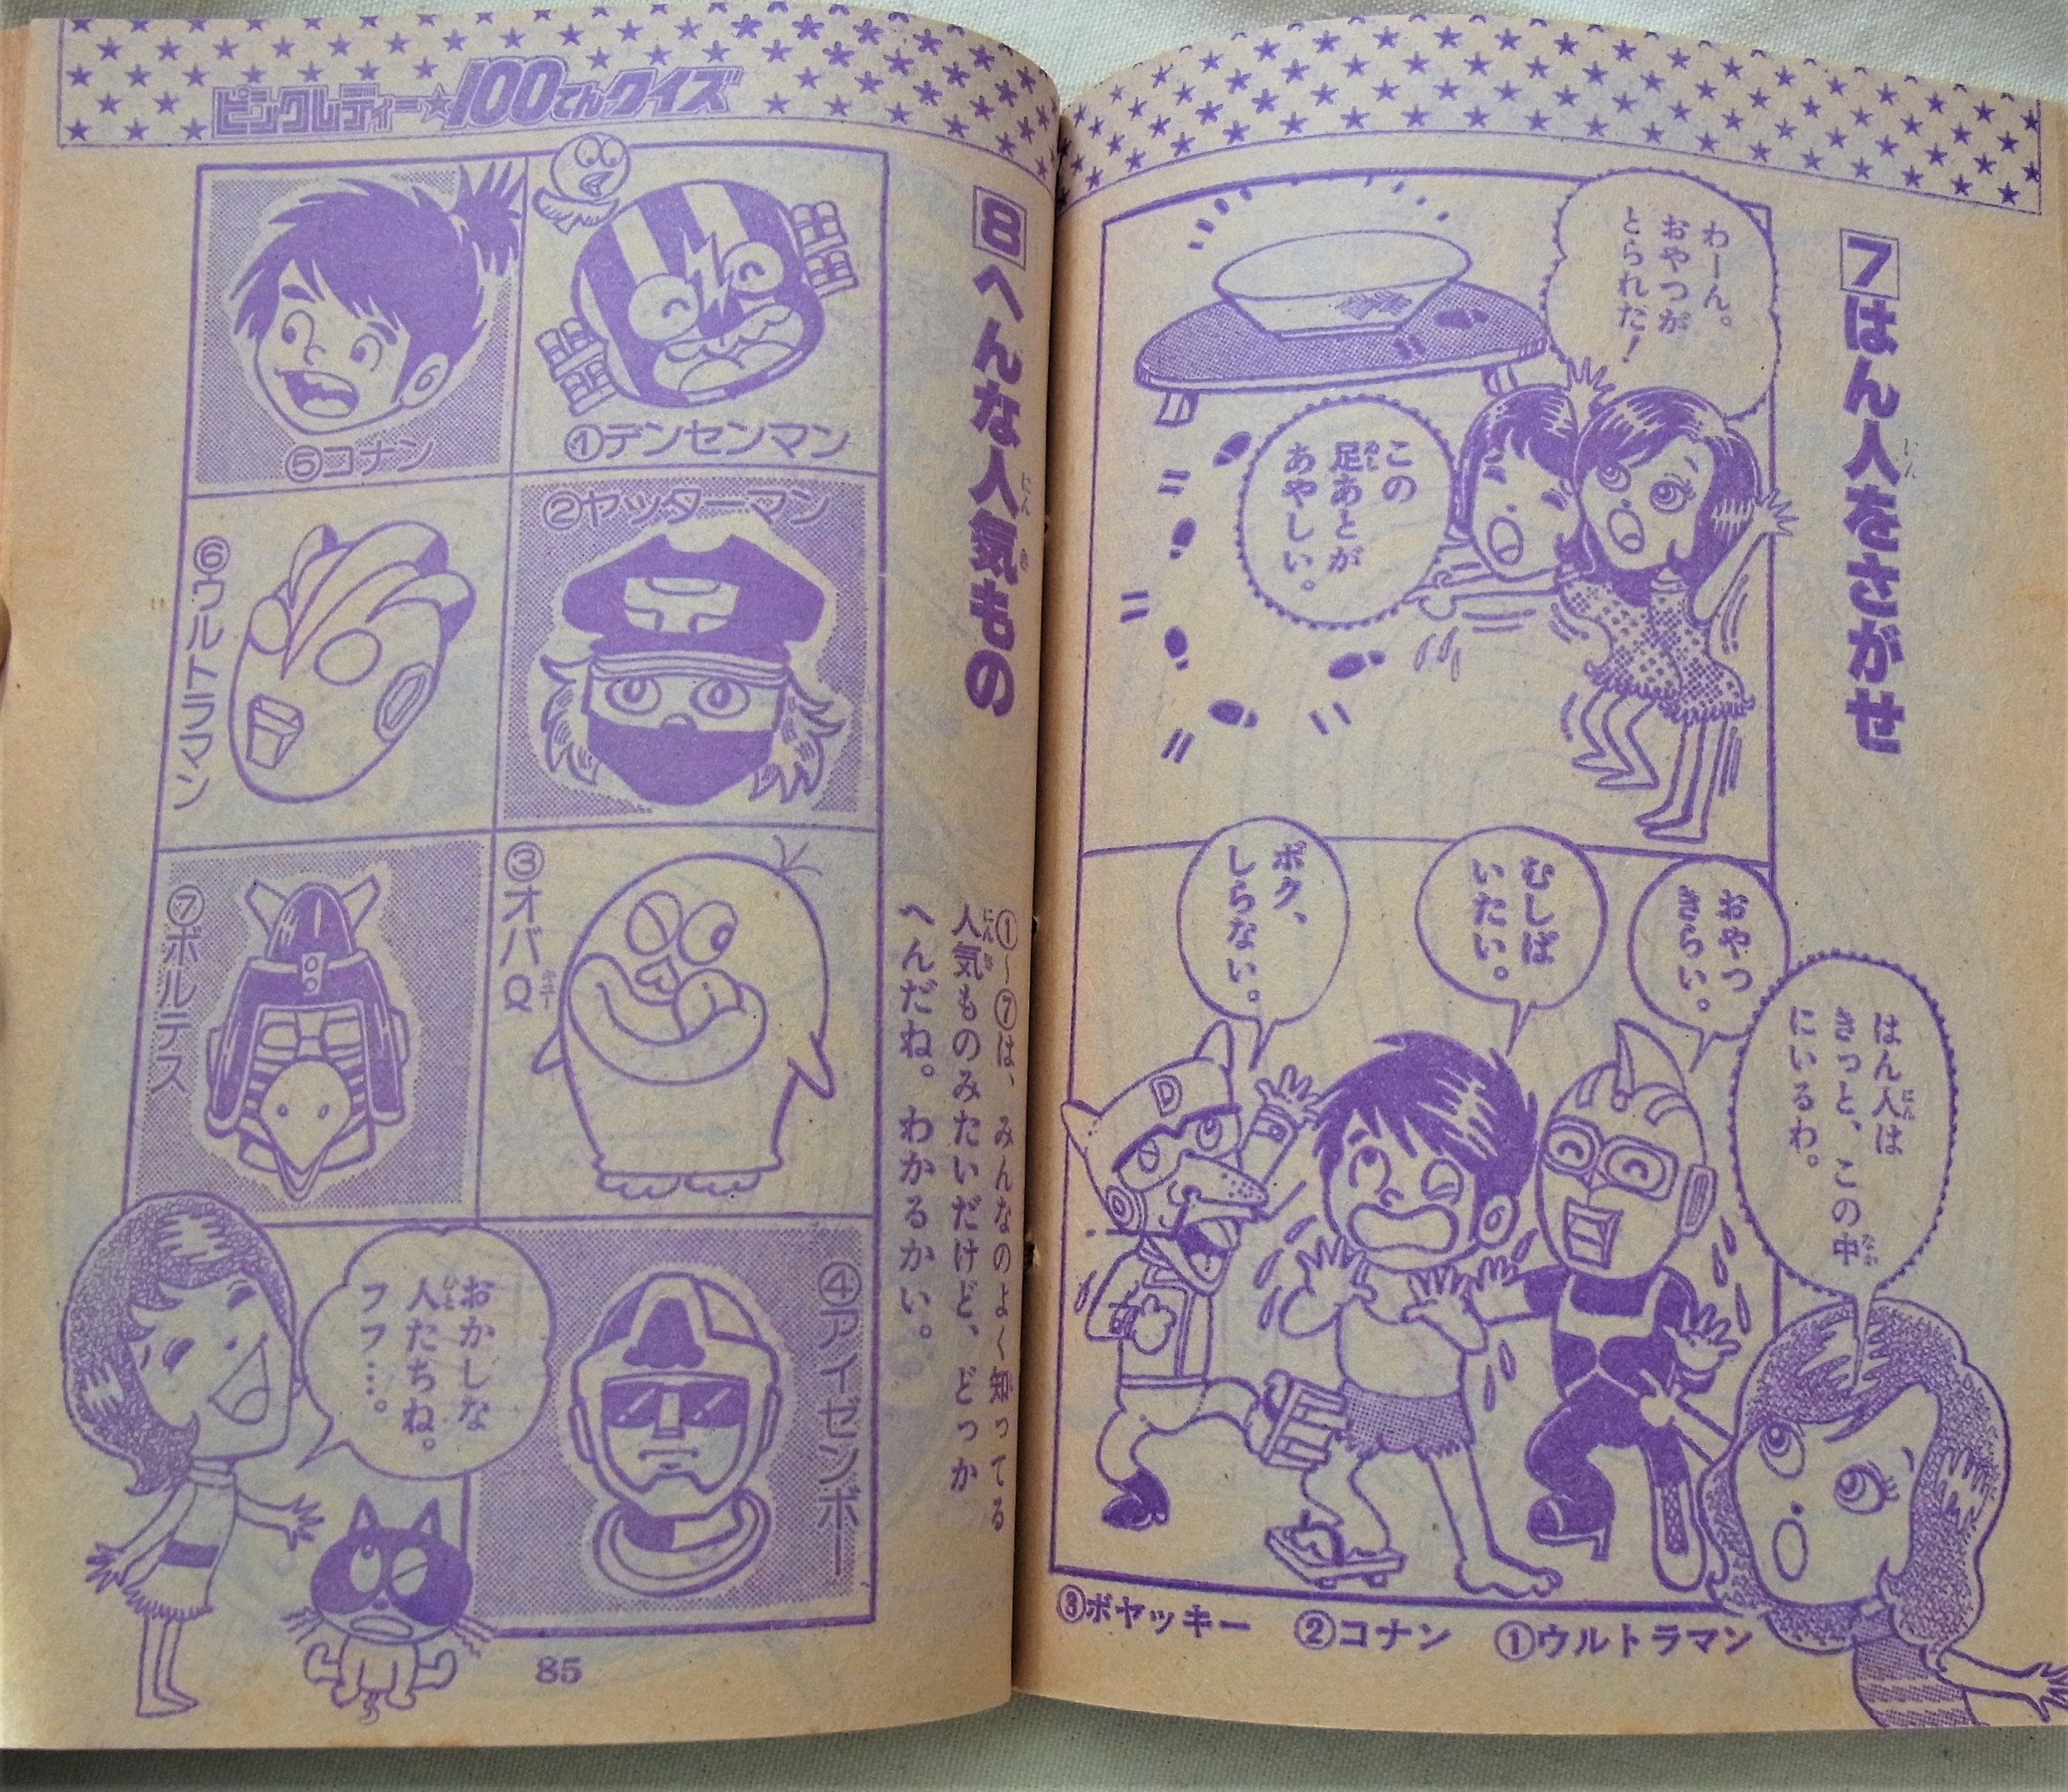 7はん人をさがせ
にん
わーん。
おやつが
とられた!
この
足あとが
あし
あやしい。
おやつ
きらい。
むしば
いたい。
ボク、
しらない。
はん人は
にん
きっと、この中
なか
にいるわ。
D
①ウルトラマン
②コナン
③ボヤッキー
ピンクレディー★100てんクイズ
8へんな人気もの
にんき
①〜⑦は、みんなのよく知ってる
人気ものみたいだけど、どっか
にんき
へんだね。わかるかい。
①デンセンマン
②ヤッターマン
③オバQ
キュー
④アイゼンボー
⑤コナン
⑥ウルトラマン
⑦ボルテス
おかしな
人たちね。
ひと
フフ…。
85